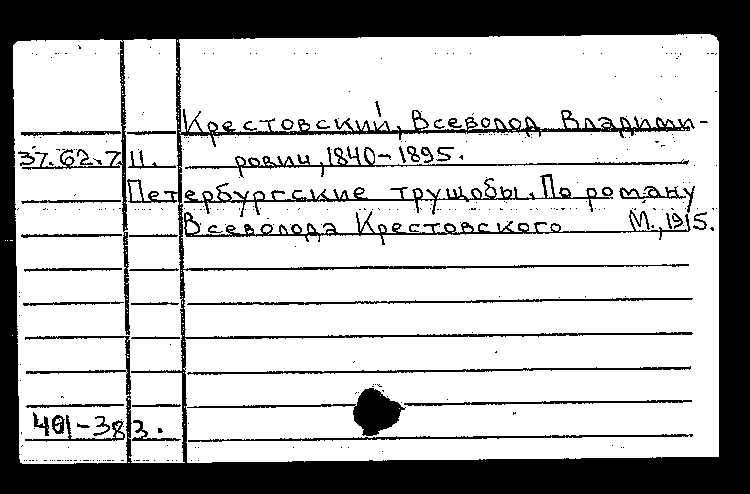 Крестовский, Всеволод Владими-
37.62.7.11. рович, 1840-1895.
Петербургские трущобы. По роману
Всеволода Крестовского М., 1915.
401-383.